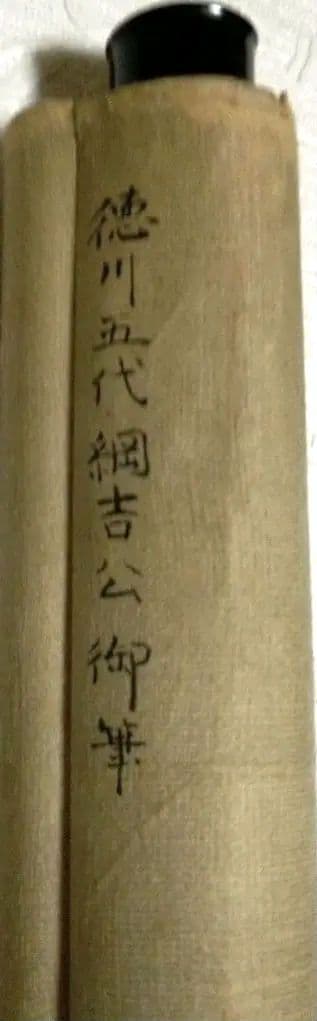 徳川五代綱吉公御筆